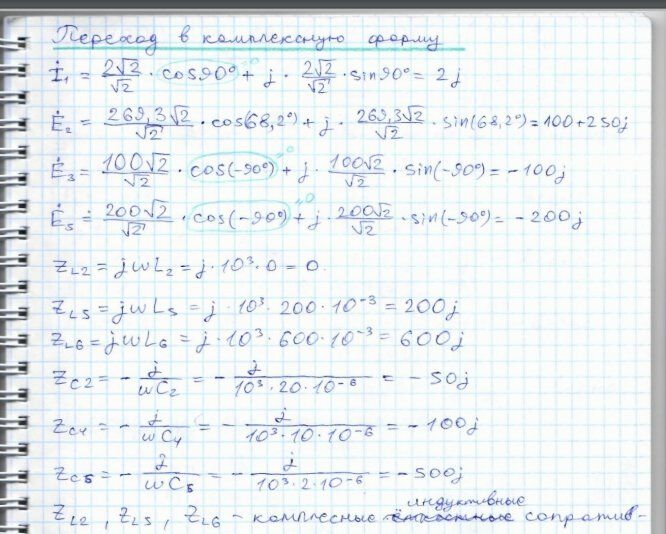 Переход в комплексную форму
İ₁ = 2√2/√2 · cos90° + j · 2√2/√2 · sin90° = 2j
Ė₂ = 269,3√2/√2 · cos(68,2°) + j · 269,3√2/√2 · sin(68,2°) = 100 + 250j
Ė₃ = 100√2/√2 · cos(-90°) + j · 100√2/√2 · sin(-90°) = -100j
Ė₅ = 200√2/√2 · cos(-90°) + j · 200√2/√2 · sin(-90°) = -200j
Z_L2 = jωL₂ = j · 10³ · 0 = 0
Z_L5 = jωL₅ = j · 10³ · 200 · 10⁻³ = 200j
Z_L6 = jωL₆ = j · 10³ · 600 · 10⁻³ = 600j
Z_C2 = - j/ωC₂ = - j/10³·20·10⁻⁶ = -50j
Z_C4 = - j/ωC₄ = - j/10³·10·10⁻⁶ = -100j
Z_C5 = - j/ωC₅ = - j/10³·2·10⁻⁶ = -500j
индуктивные
Z_L2, Z_L5, Z_L6 - комплесные ёмкостные сопратив-